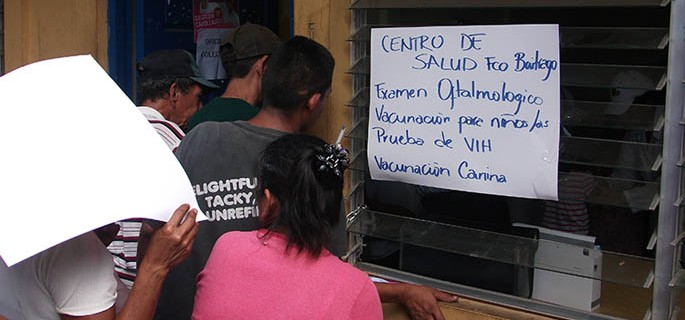 CENTRO DE
SALUD Fco Buitrago
Examen Oftalmologico
Vacunación para niños/as
Prueba de VIH
Vacunación Canina
ELIGHTFU
TACKY,
UNREFI